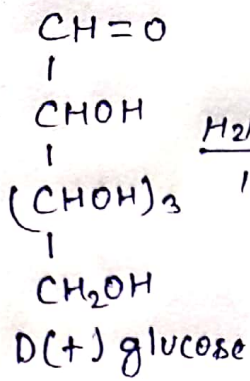 CH=O
|
CHOH
|
(CHOH)3
|
CH2OH
D(+) glucose